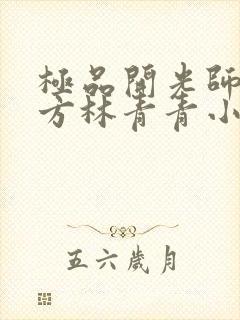 極品開光師
方林青青小
五六歲月